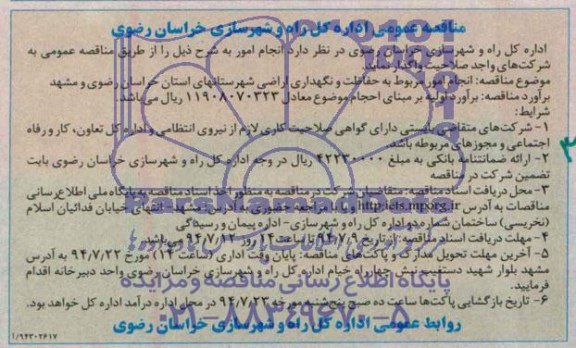 مناقصه عمومی اداره کل راه و شهرسازی خراسان رضوی
اداره کل راه و شهرسازی خراسان رضوی در نظر دارد انجام امور به شرح ذیل را از طریق مناقصه عمومی به
شرکت‌های واجد صلاحیت واگذار نماید.
موضوع مناقصه: انجام امور مربوط به حفاظت و نگهداری اراضی شهرستانهای استان خراسان رضوی و مشهد
برآورد مناقصه: برآورد اولیه بر مبنای احجام موضوع معادل ۱۱۹۰۸۰۷۰۳۲۳ ریال می‌باشد.
شرایط:
۱- شرکت‌های متقاضی بایستی دارای گواهی صلاحیت کاری لازم از نیروی انتظامی و اداره کل تعاون، کار و رفاه
اجتماعی و مجوزهای مربوطه باشد.
۲- ارائه ضمانتنامه بانکی به مبلغ ۴۲۲۳۰۰۰۰۰ ریال در وجه اداره کل راه و شهرسازی خراسان رضوی بابت
تضمین شرکت در مناقصه
۳- محل دریافت اسناد مناقصه: متقاضیان شرکت در مناقصه به منظور اخذ اسناد مناقصه به پایگاه ملی اطلاع رسانی
مناقصات به آدرس http:iets.mporg.ir و یا با مراجعه حضوری به آدرس: مشهد- انتهای خیابان فدائیان اسلام
(نخریسی) ساختمان شماره دو اداره کل راه و شهرسازی- اداره پیمان و رسیدگی
۴- مهلت دریافت اسناد مناقصه: از تاریخ ۹۴/۷/۹ تا ساعت ۱۴ روز ۹۴/۷/۱۲ می‌باشد.
۵- آخرین مهلت تحویل مدارک و پاکت‌های مناقصه: پایان وقت اداری (ساعت ۱۴) مورخ ۹۴/۷/۲۲ به آدرس
مشهد بلوار شهید دستغیب نبش چهارراه خیام اداره کل راه و شهرسازی خراسان رضوی واحد دبیرخانه اقدام
فرمایید.
۶- تاریخ بازگشایی پاکت‌ها ساعت ده صبح پنج‌شنبه مورخه ۹۴/۷/۲۳ در محل اداره درآمد اداره کل خواهد بود.
روابط عمومی اداره کل راه و شهرسازی خراسان رضوی
۱/۹۴۳۰۲۶۱۷
ParsNamadData
پایگاه اطلاع رسانی مناقصه و مزایده
۰۲۱-۸۸۳۴۹۶۷۰-۵